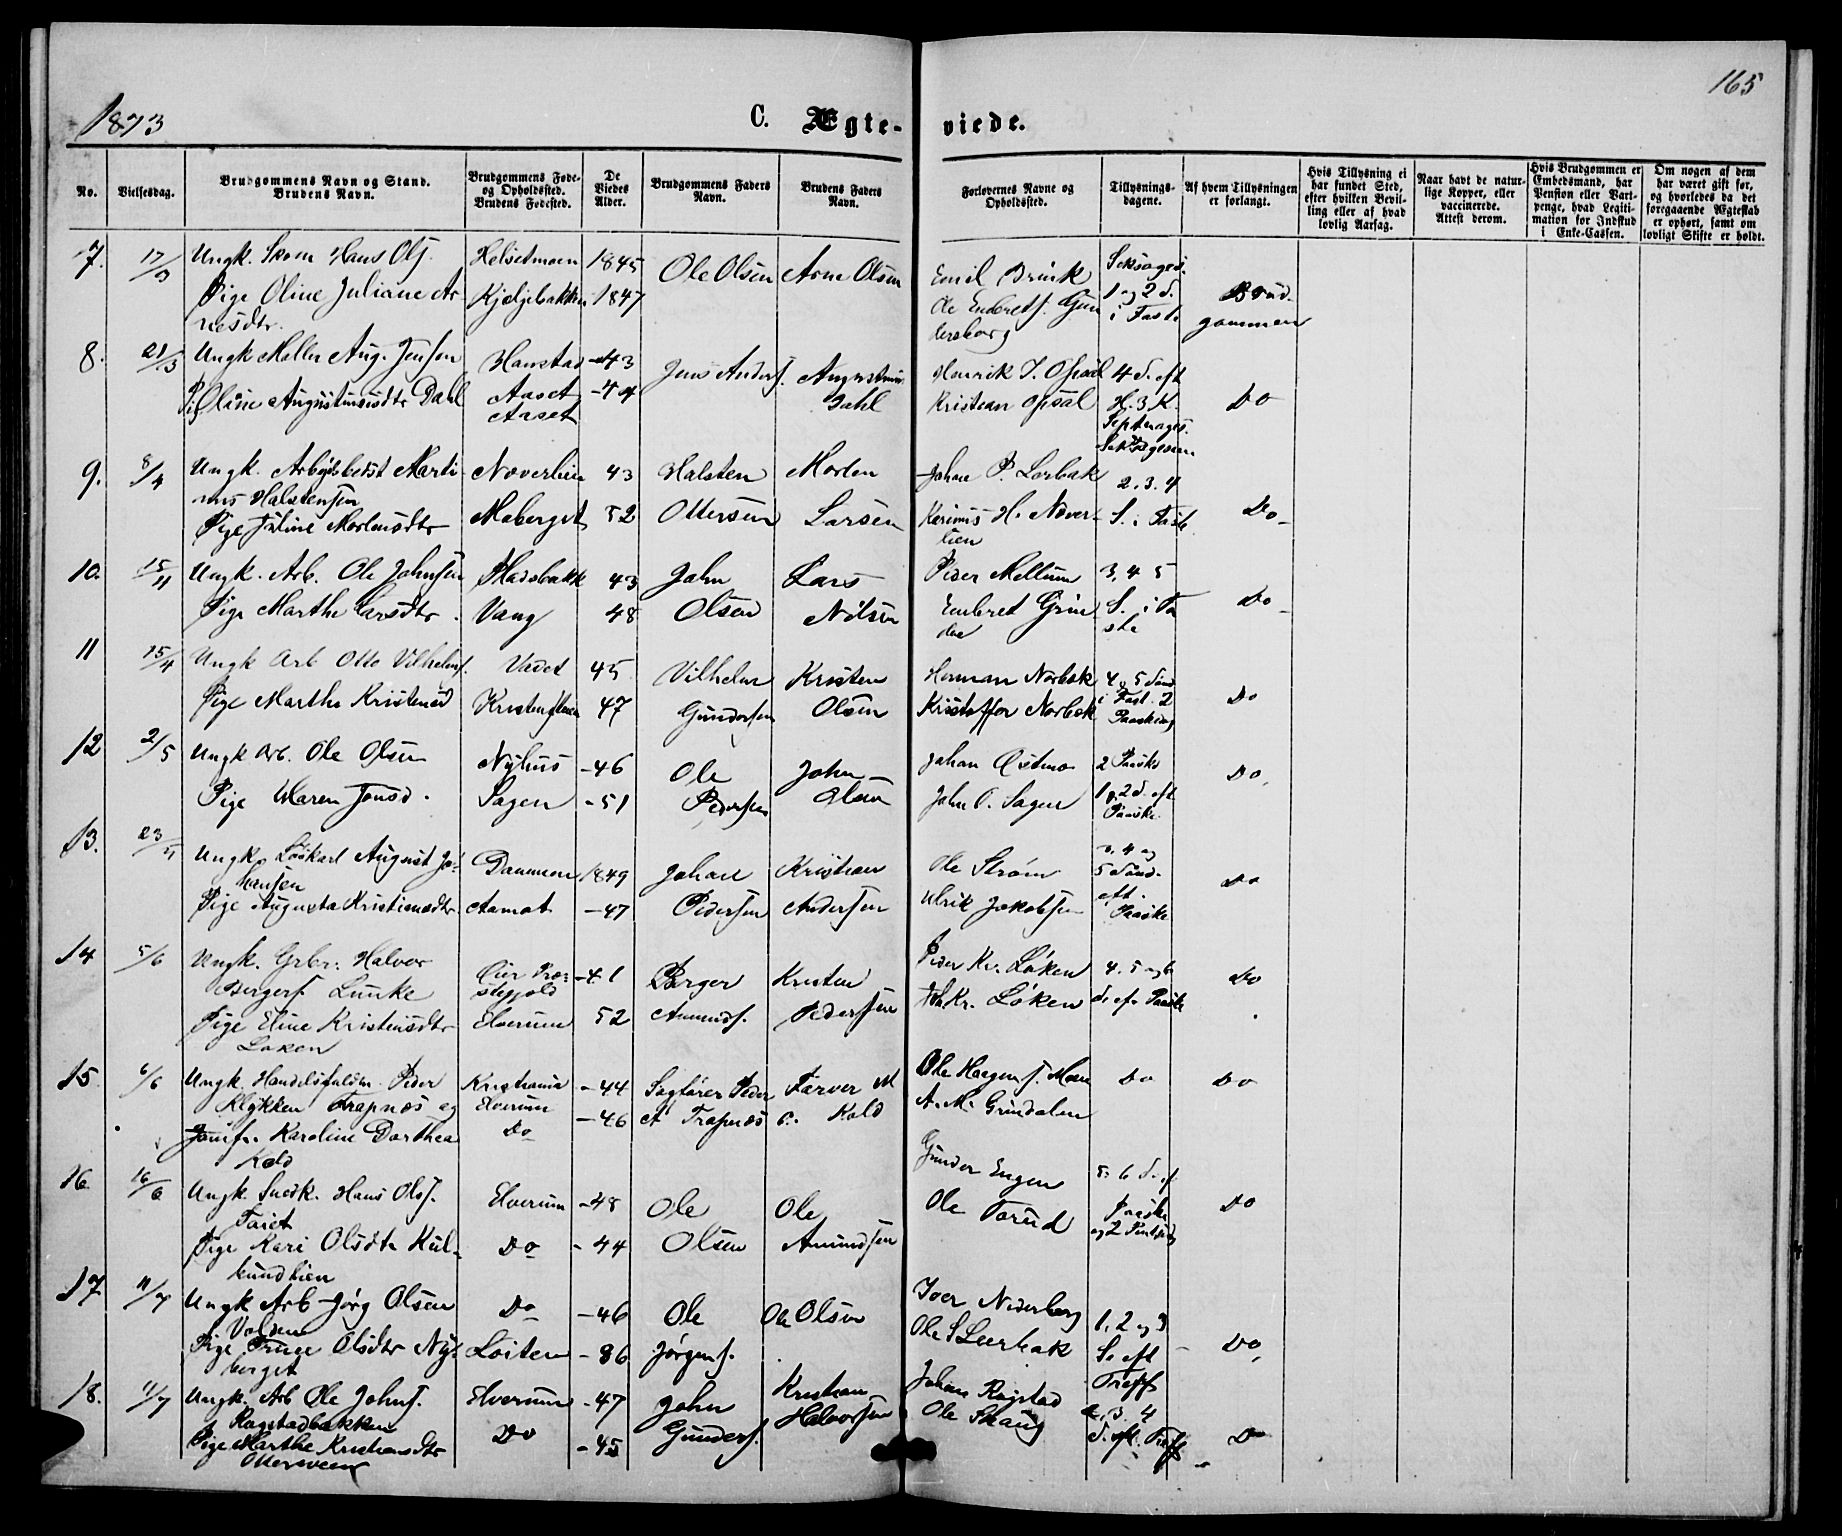 165
1873
C. Ægteviede.
No.
Vielsesdag.
Brudgommens Navn og Stand.
Brudens Navn.
Brudgommens Føde-
og Opholdssted.
Brudens Fødested.
De
Viedes
Alder.
Brudgommens Faders
Navn.
Brudens Faders
Navn.
Forlovernes Navne og
Opholdssted.
Tillysnings-
dagene.
Af hvem Tillysningen
er forlangt.
Hvis Tillysning ei
har fundet Sted,
efter hvilken Bevil-
ling eller af hvad
lovlig Aarsag.
Naar havt de natur-
lige Kopper, eller
vaccinerede.
Attest derom.
Hvis Brudgommen er
Embedsmand, har
Pension eller Vart-
penge, hvad Legiti-
mation for Indskud
i Enke-Cassen.
Om nogen af dem
har været gift før,
og hvorledes da det
foregaaende Ægteskab
er ophørt, samt om
lovligt Skifte er holdt.
7. 17/3 Ungk. Skom Hans Ols. Helsetmoen 1845 Ole Olsen Arne Olsen Emil
Pige Oline Juliane Ar 1847 Ole Embrets. 1 og 2 S. Brud-
nesdtr. i Faste gommen
8. 21/3 Ungk Møller Aug. Jensen Hanstad -43 Jens Anders. Henrik J. Opsal 4 S. eft
Pig Oline Augustinusdtr Dahl Aaset -44 Dahl Kristian Opsal H. 3 K. Do
Aaset Septuages.
9. 8/4 Ungk. Marti- Noverlien 43 Halsten Morten Johan P. 2. 3. 4
nus Halstensen
Pige Juline Mortensdtr Moberget 52 Ottersen Larsen H. Nover- S. i Faste Do
lien
10. 15/4 Ungk. Arb. Ole Johnsen 43 John Lars Peder Mellum 3, 4 5
Pige Marthe Larsdtr. Vang 48 Olsen Nilsen Embret Grin S. i Fa Do
dee ste
11 15/4 Ungk Arb Otto Vilhelms. 45 Vilhelm Kristen Herman Norbek 4 og 5 Sønd
Pige Marthe Kristensd 47 Gundersen Olsen Kristoffer Norbek i Fast. 2 Do
Paaskdag
12 2/5 Ungk Arb. Ole Olsen Nyhus -46 Ole John Johan Østmo 2 Paaske Do
Pige Maren Jonsd. Sagen -51 Pedersen Olsen John O. Sagen 1 og 2 S. eft
Paaske
13. Ungk Løskarl August Jo- Dammen 1849 Johan Kristian Ole Strøm 3. 4 og
hansen 5 Sønd. Do
Pige Augusta Kristiansdtr. Aamot -47 Pedersen Andersen Ulrik Jakobsen eft.
Paaske
14 5/6 Ungk. Grbr. Halvor Øier Præ- -41 Berger Kristen Peder Kr. Løken 4. 5 og 6 Do
Bergers. Lunke stegjeld
Pige Eline Kristensdtr Elverum 52 Amunds. Pedersen Joh Kr. Løken S. ef. Paaske
Løken
15. 6/6 Ungk. Handelsfuldm. Peder Kristiania -44 Sagfører Peder Farver M Ole Haagens. Moen Do Do
Klykken Trapnæs og Elverum -46 A Trapnæs C. Kold A. M. Grindalen
Jomfr. Karoline Dorthea Do
Kold
16. 16/6 Ungk Snedk. Hans Ols. Elverum -48 Ole Ole Gunder Engen 5. 6 S. ef.
Paaske Do
Pige Kari Olsdtr Kul- Do -44 Olsen Amundsen Ole Torud og 2
bundlien
17 11/7 Ungk Arb Jørg Olsen Do -46 Ole Ole Olsen Iver Nederberg 1. 2 og 3
Volden
Pige Olsdtr Ny- Løiten - 36 Jørgens. Ole S S. eft Do
berget Treff
18. 11/7 Ungk. Arb Ole Johns. Elverum -47 John Kristian Johan Rogstad
Rogstadbakken 2. 3. 4
Pige Marthe Kristiansdtr Do -45 Gunders. Halvorsen Ole Skaug S. eft. Treff Do